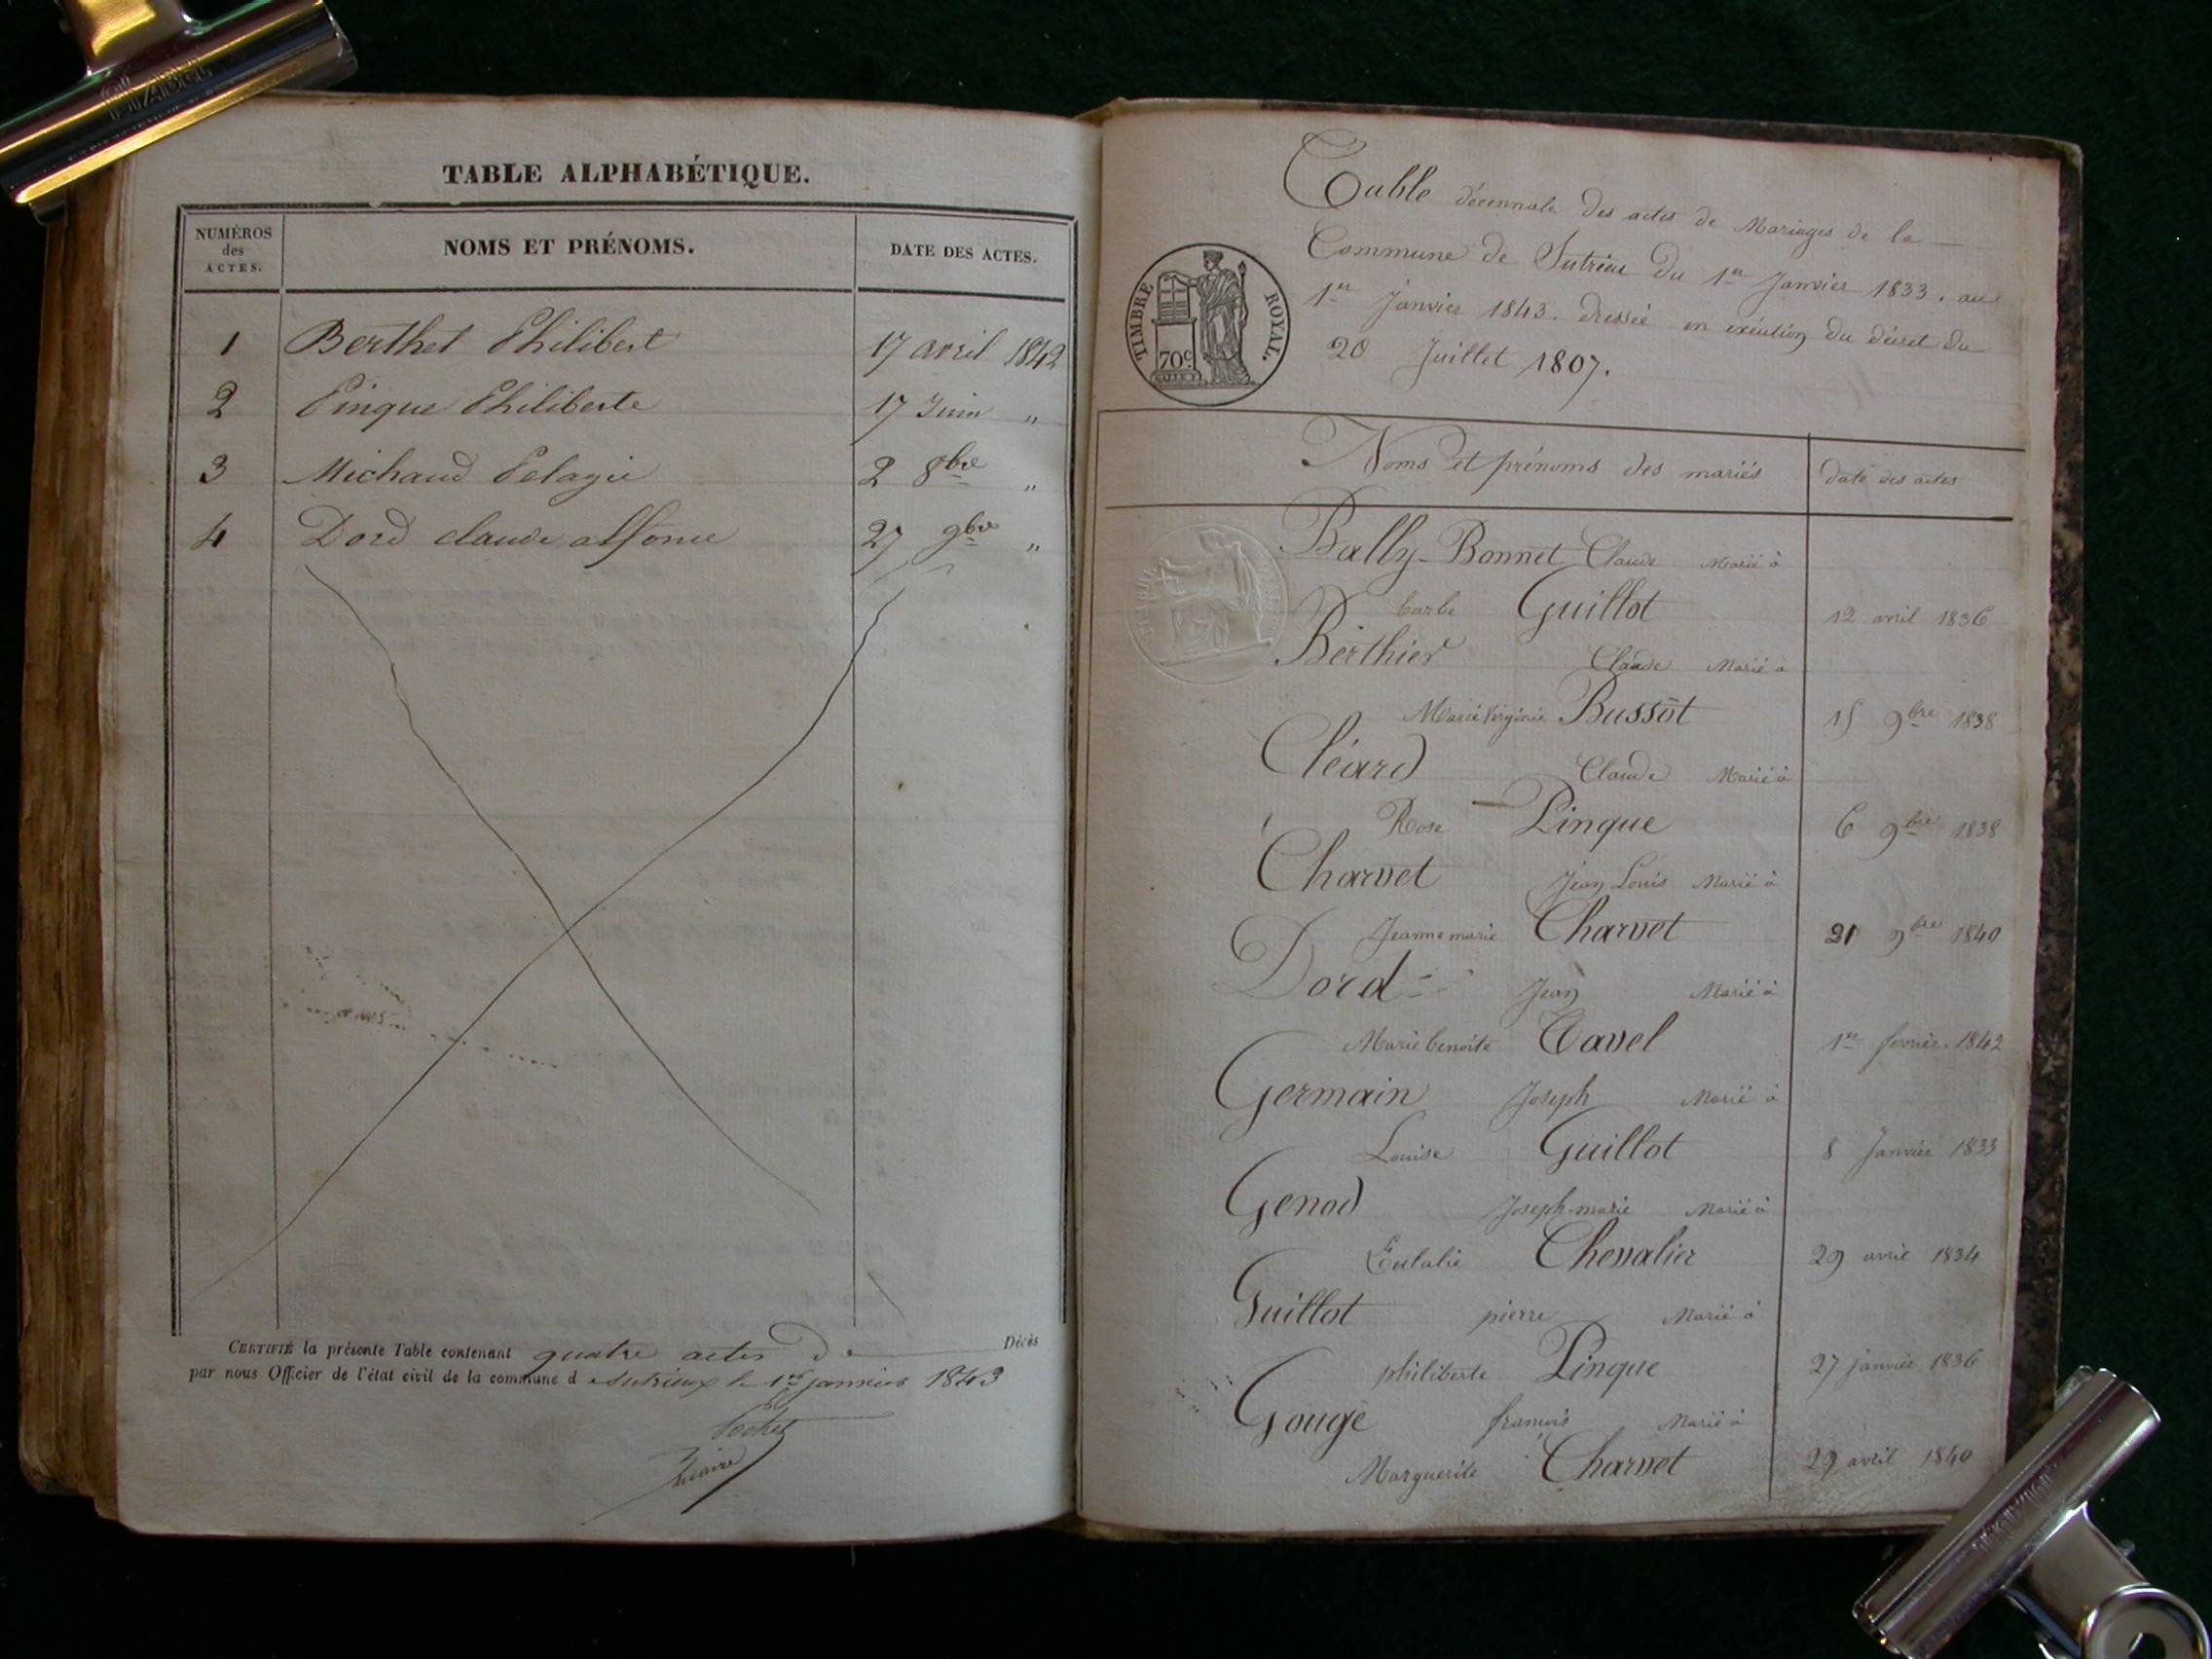 TABLE ALPHABÉTIQUE.
NUMÉROS des ACTES. NOMS ET PRÉNOMS. DATE DES ACTES.
1 Berthet Philibert 17 avril 1842
2 Pinque Philiberte 17 Juin "
3 Michaud Pelagie 2 8bre "
4 Dord claude alfonse 27 9bre "
CERTIFIÉ la présente Table contenant quatre actes de Décès
par nous Officier de l'état civil de la commune d Sutrieux le 1er janvier 1843
maire
Table décennale des actes de Mariages de la
Commune de Sutrieu du 1er Janvier 1833. au
1er Janvier 1843. dressée en exécution du décret du
20 Juillet 1807.
TIMBRE ROYAL.
70c
Noms et prénoms des mariés date des actes
Bally-Bonnet Claude Marié à
barbe Guillot 12 avril 1836
Berthier Claude Marié à
Marie Virginie Bussot 15 9bre 1838
Cléard Claude Marié à
Rose Pinque 6 9bre 1838
Charvet Jean Louis Marié à
Jeanne marie Charvet 21 9bre 1840
Dord Jean Marié à
Marie benoite Tavel 1er fevrier. 1842
Germain Joseph Marié à
Louise Guillot 8 Janvier 1833
Genod Joseph-marie Marié à
Eulalie Chevalier 29 avril 1834
Guillot pierre Marié à
philiberte Pinque 27 janvier 1836
Gouge francois Marié à
Marguerite Charvet 29 avril 1840